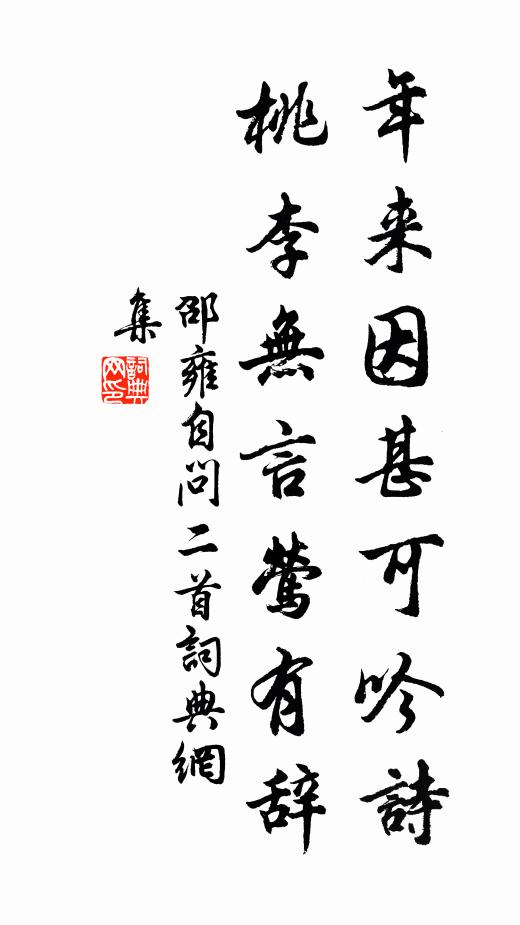 年来因甚可吟詩
桃李無言鶯有辞
邵雍自問二首詞典網
集
詞典
网印